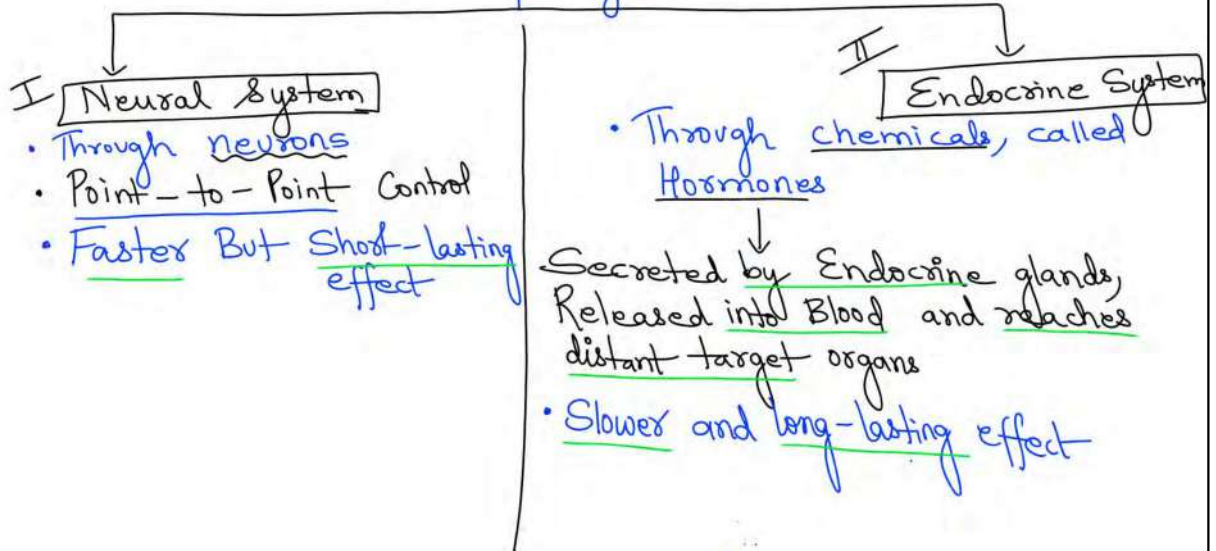 I Neural System
• Through neurons
• Point-to-Point Control
• Faster But Short-lasting
effect
II
Endocrine System
• Through chemicals, called
Hormones
Secreted by Endocrine glands,
Released into Blood and reaches
distant target organs
• Slower and long-lasting effect